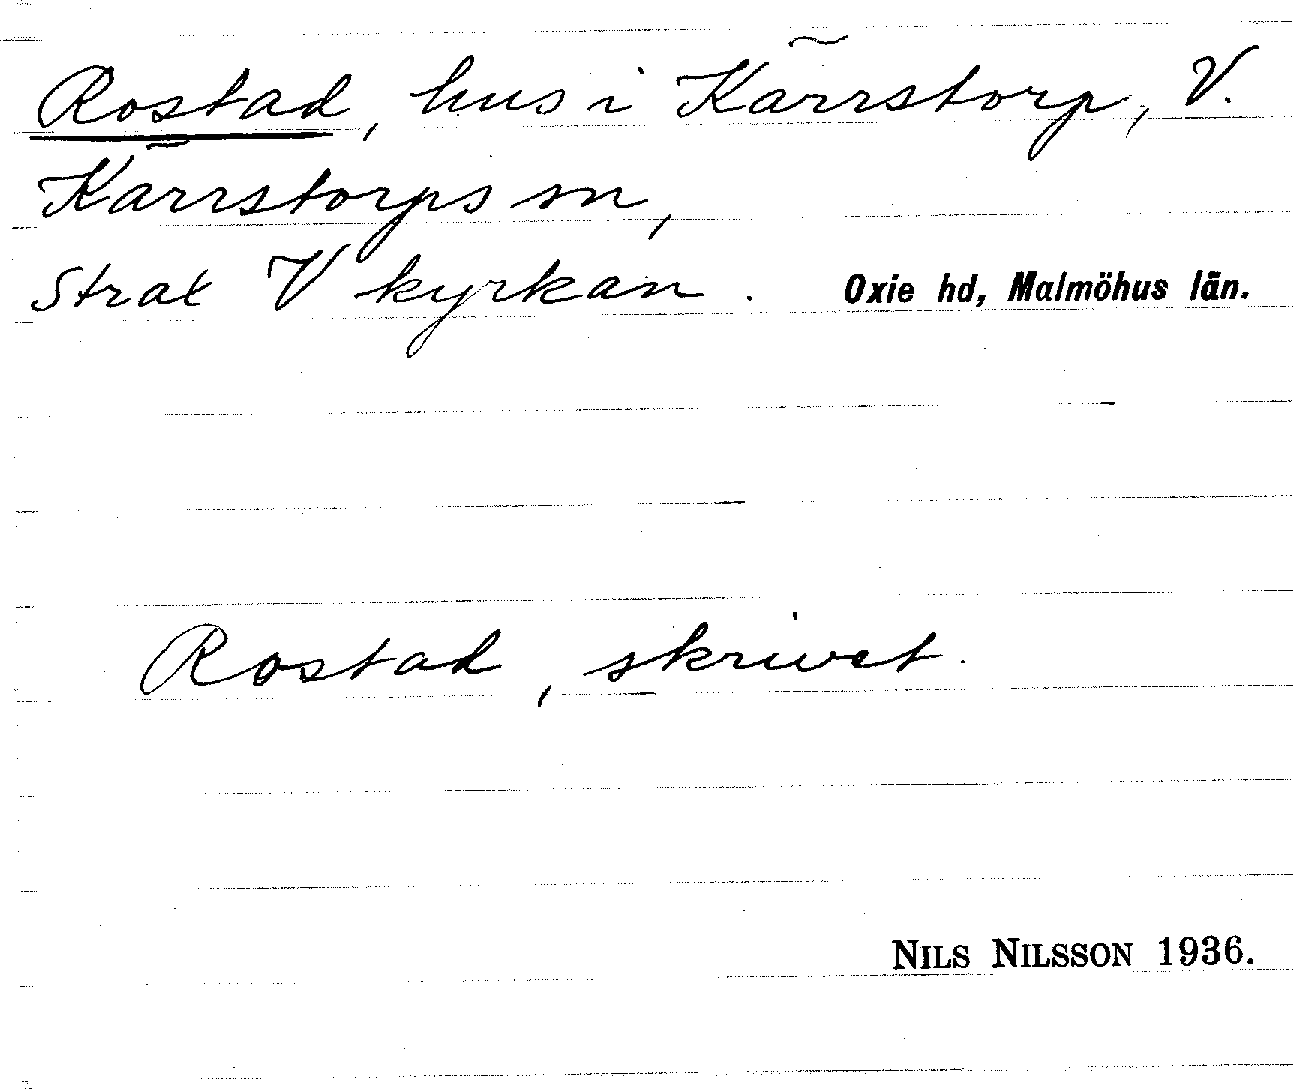 Rostad, hus i Kärrstorp, V.
Kärrstorps sn,
Strax V kyrkan. Oxie hd, Malmöhus län.
Rostad, skrivet.
NILS NILSSON 1936.